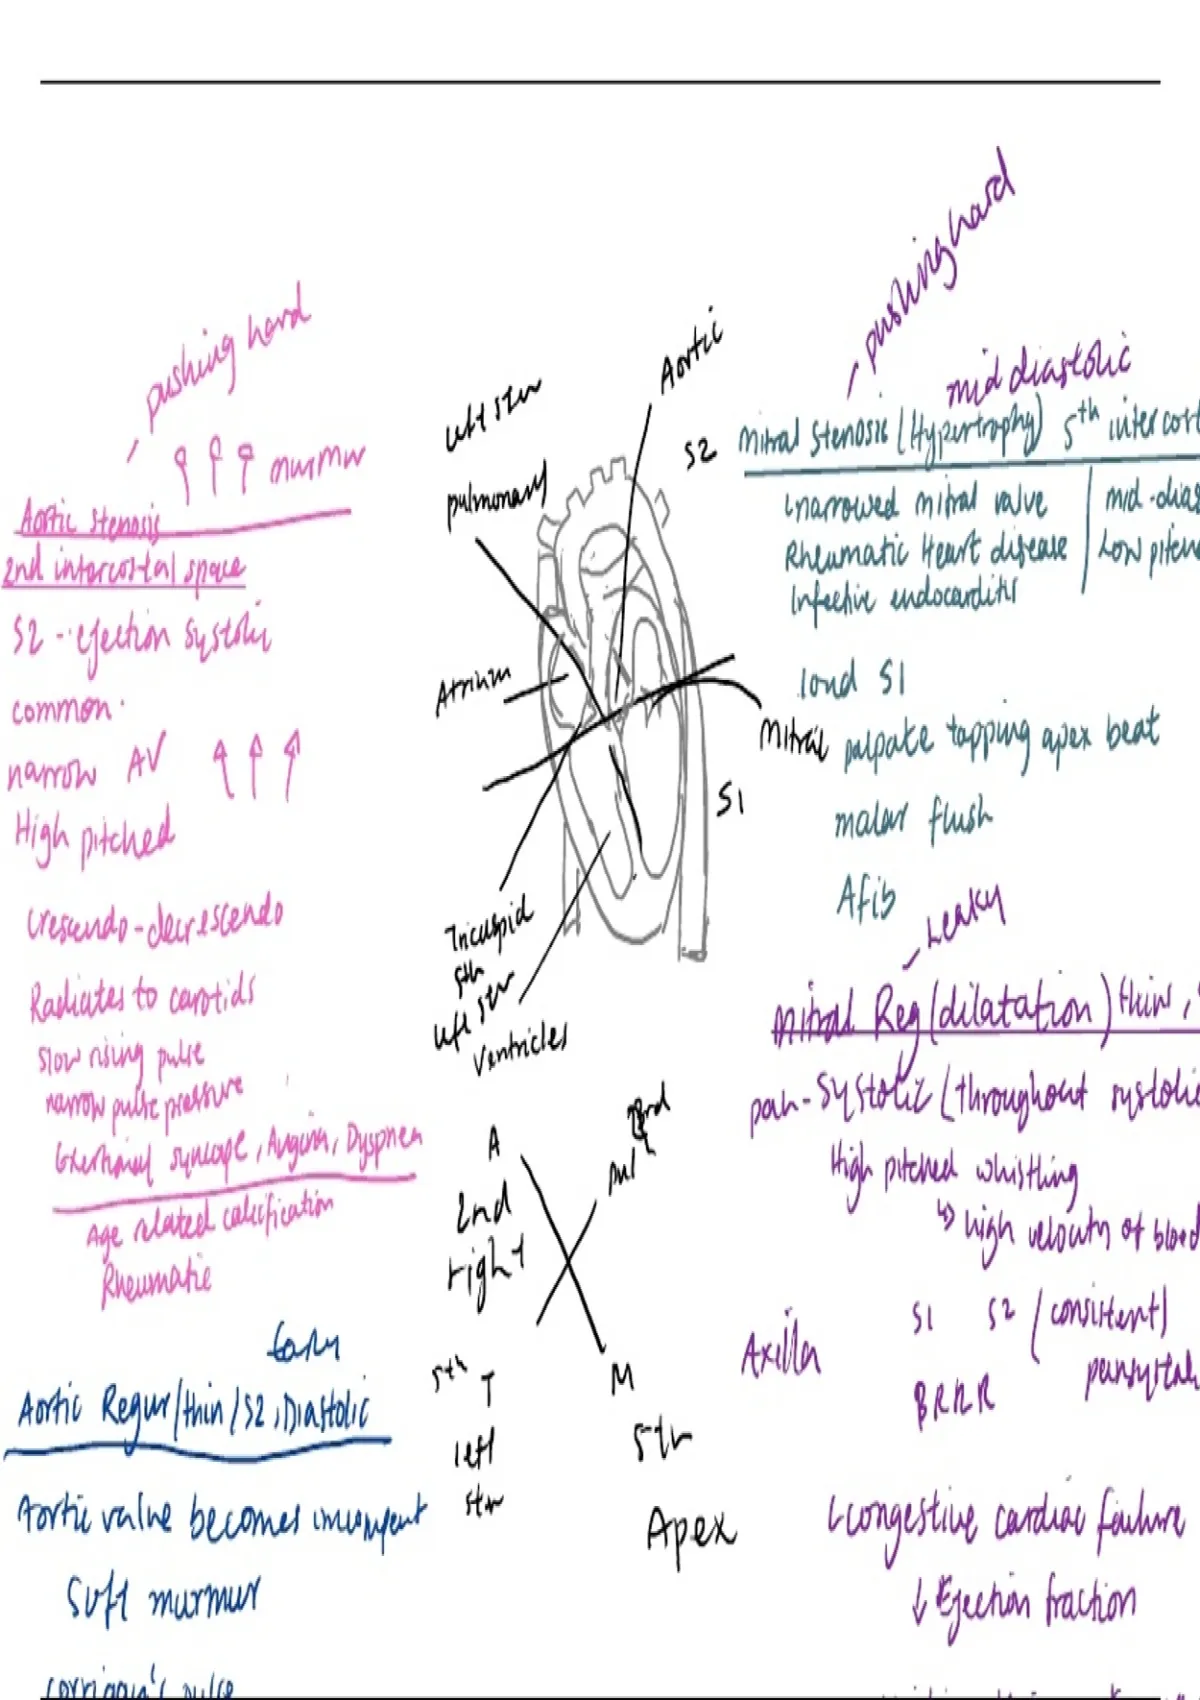 pushing hard
↑ ↑ ↑ murmur
Aortic stenosis
2nd intercostal space
S2 - ejection systolic
common
narrow AV ↑ ↑ ↑
High pitched
crescendo-decrescendo
Radiates to carotids
slow rising pulse
narrow pulse pressure
Exertional syncope, Angina, Dyspnea
Age related calcification
Rheumatic
Early
Aortic Regur/thin/S2, Diastolic
Aortic valve becomes
Soft murmur
corrigan's pulse
left ster
pulmonary
Aortic
S2
Atrium
Mitral
S1
Tricuspid
5th
left ster
ventricles
A
2nd
right
pul
5th T
left
ster
M
5th
Apex
pushing hard
mid diastolic
Mitral stenosis (Hypertrophy) 5th intercost
narrowed mitral valve
Rheumatic Heart disease
Infective endocarditis
mid-dias
Low pitch
loud S1
palpate tapping apex beat
malar flush
Afib
Leaky
Mitral Reg (dilatation) thin,
pan-systolic (throughout systolic
High pitched whistling
↳ high velocity of blood
S1 S2 (consistent)
pansystol
BRRR
Axilla
↳ congestive cardiac failure
↓ Ejection fraction